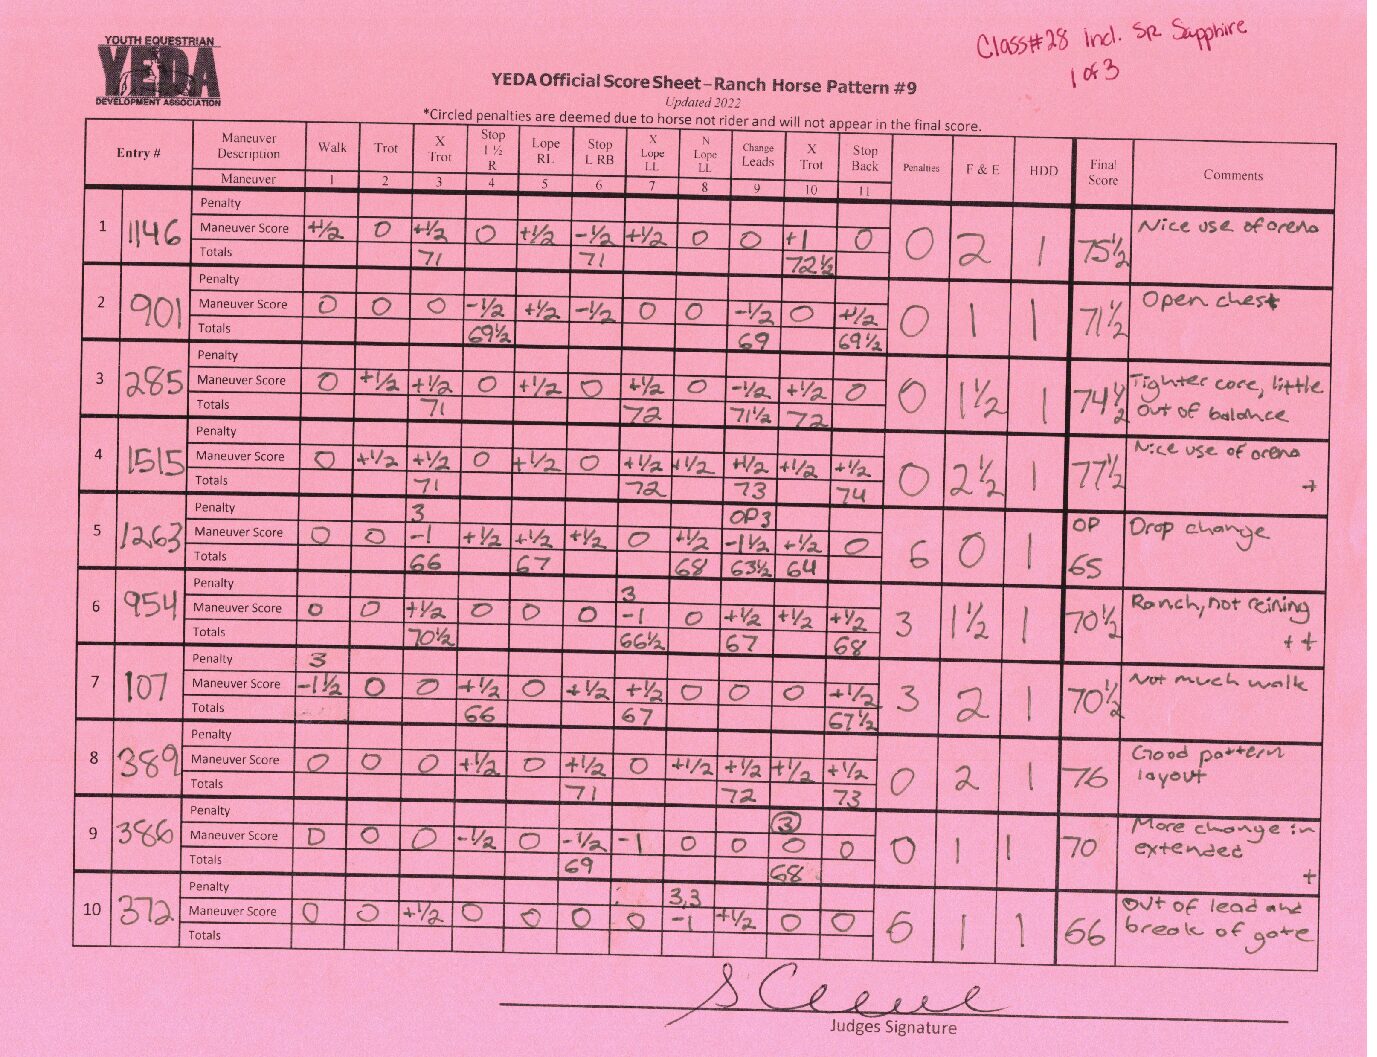 Class#28 incl. SR Sapphire
1 of 3
YOUTH EQUESTRIAN
YEDA
DEVELOPMENT ASSOCIATION
YEDA Official Score Sheet – Ranch Horse Pattern #9
Updated 2022
*Circled penalties are deemed due to horse not rider and will not appear in the final score.
Entry # Maneuver Description Walk Trot X Trot Stop 1 ½ R Lope RL Stop L RB X Lope LL N Lope LL Change Leads X Trot Stop Back Penalties F & E HDD Final Score Comments
Maneuver 1 2 3 4 5 6 7 8 9 10 11
1 1146 Penalty
Maneuver Score +1/2 0 +1/2 0 +1/2 -1/2 +1/2 0 0 +1 0 0 2 1 75½ Nice use of arena
Totals 71 71 72½
2 901 Penalty
Maneuver Score 0 0 0 -1/2 +1/2 -1/2 0 0 -1/2 0 +1/2 0 1 1 71½ Open chest
Totals 69½ 69 69½
3 285 Penalty
Maneuver Score 0 +1/2 +1/2 0 +1/2 0 +1/2 0 -1/2 +1/2 0 0 1½ 1 74½ Tighter core, little
Totals 71 72 71½ 72 out of balance
4 1515 Penalty
Maneuver Score 0 +1/2 +1/2 0 +1/2 0 +1/2 +1/2 +1/2 +1/2 +1/2 0 2½ 1 77½ Nice use of arena
Totals 71 72 73 74 +
5 1263 Penalty 3 OP3
Maneuver Score 0 0 -1 +1/2 +1/2 +1/2 0 +1/2 -1½ +1/2 0 6 0 1 OP 65 Drop change
Totals 66 67 68 63½ 64
6 954 Penalty 3
Maneuver Score 0 0 +1/2 0 0 0 -1 0 +1/2 +1/2 +1/2 3 1½ 1 70½ Ranch, not reining
Totals 70½ 66½ 67 68 ++
7 107 Penalty 3
Maneuver Score -1½ 0 0 +1/2 0 +1/2 +1/2 0 0 0 +1/2 3 2 1 70½ Not much walk
Totals 66 67 67½
8 389 Penalty
Maneuver Score 0 0 0 +1/2 0 +1/2 0 +1/2 +1/2 +1/2 +1/2 0 2 1 76 Good pattern
Totals 71 72 73 layout
9 386 Penalty 3
Maneuver Score 0 0 0 -1/2 0 -1/2 -1 0 0 0 0 0 1 1 70 More change in
Totals 69 68 extended
+
10 372 Penalty 3,3
Maneuver Score 0 0 +1/2 0 0 0 0 -1 +1/2 0 0 6 1 1 66 Out of lead and
Totals break of gate
Judges Signature